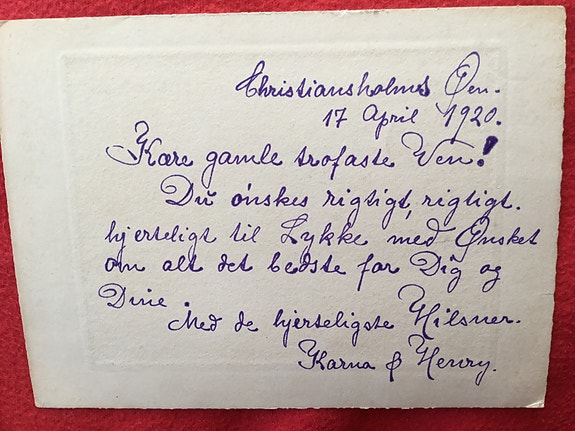 Christiansholms Øen.
17 April 1920.
Kære gamle trofaste Ven!
Du ønskes rigtigt, rigtigt.
hjerteligt til Lykke med Ønsket
om alt det bedste for Dig og
Dine.
Med de hjerteligste Hilsner.
Karna & Henry.